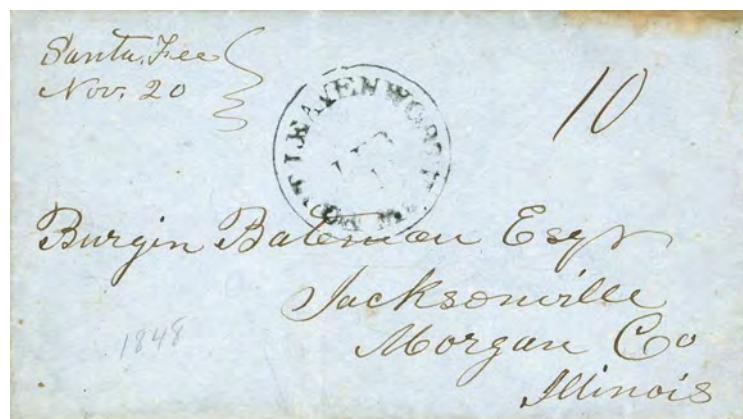 Santa Fee
Nov. 20
10
LEAVENWORTH
Burgin Bateman Esqr
Jacksonville
Morgan Co
Illinois
1848